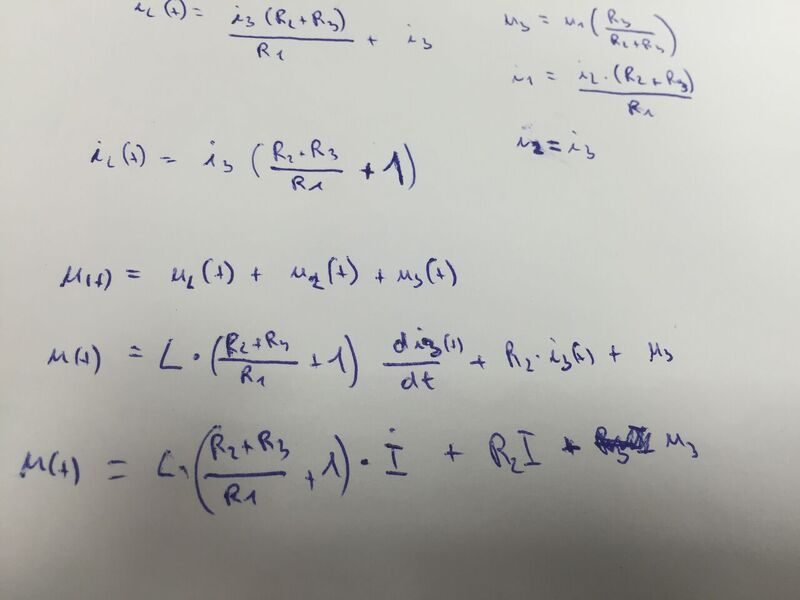 i_L(t) = \frac{i_3 (R_2 + R_3)}{R_1} + i_3
u_3 = u_1 (\frac{R_3}{R_2 + R_3})
i_1 = \frac{i_2 \cdot (R_2 + R_3)}{R_1}
i_2 = i_3
i_L(t) = i_3 (\frac{R_2 + R_3}{R_1} + 1)
u(t) = u_L(t) + u_2(t) + u_3(t)
u(t) = L \cdot (\frac{R_2 + R_3}{R_1} + 1) \frac{d i_3(t)}{dt} + R_2 \cdot i_3(t) + u_3
u(t) = L \cdot (\frac{R_2 + R_3}{R_1} + 1) \cdot \dot{I} + R_2 I + u_3